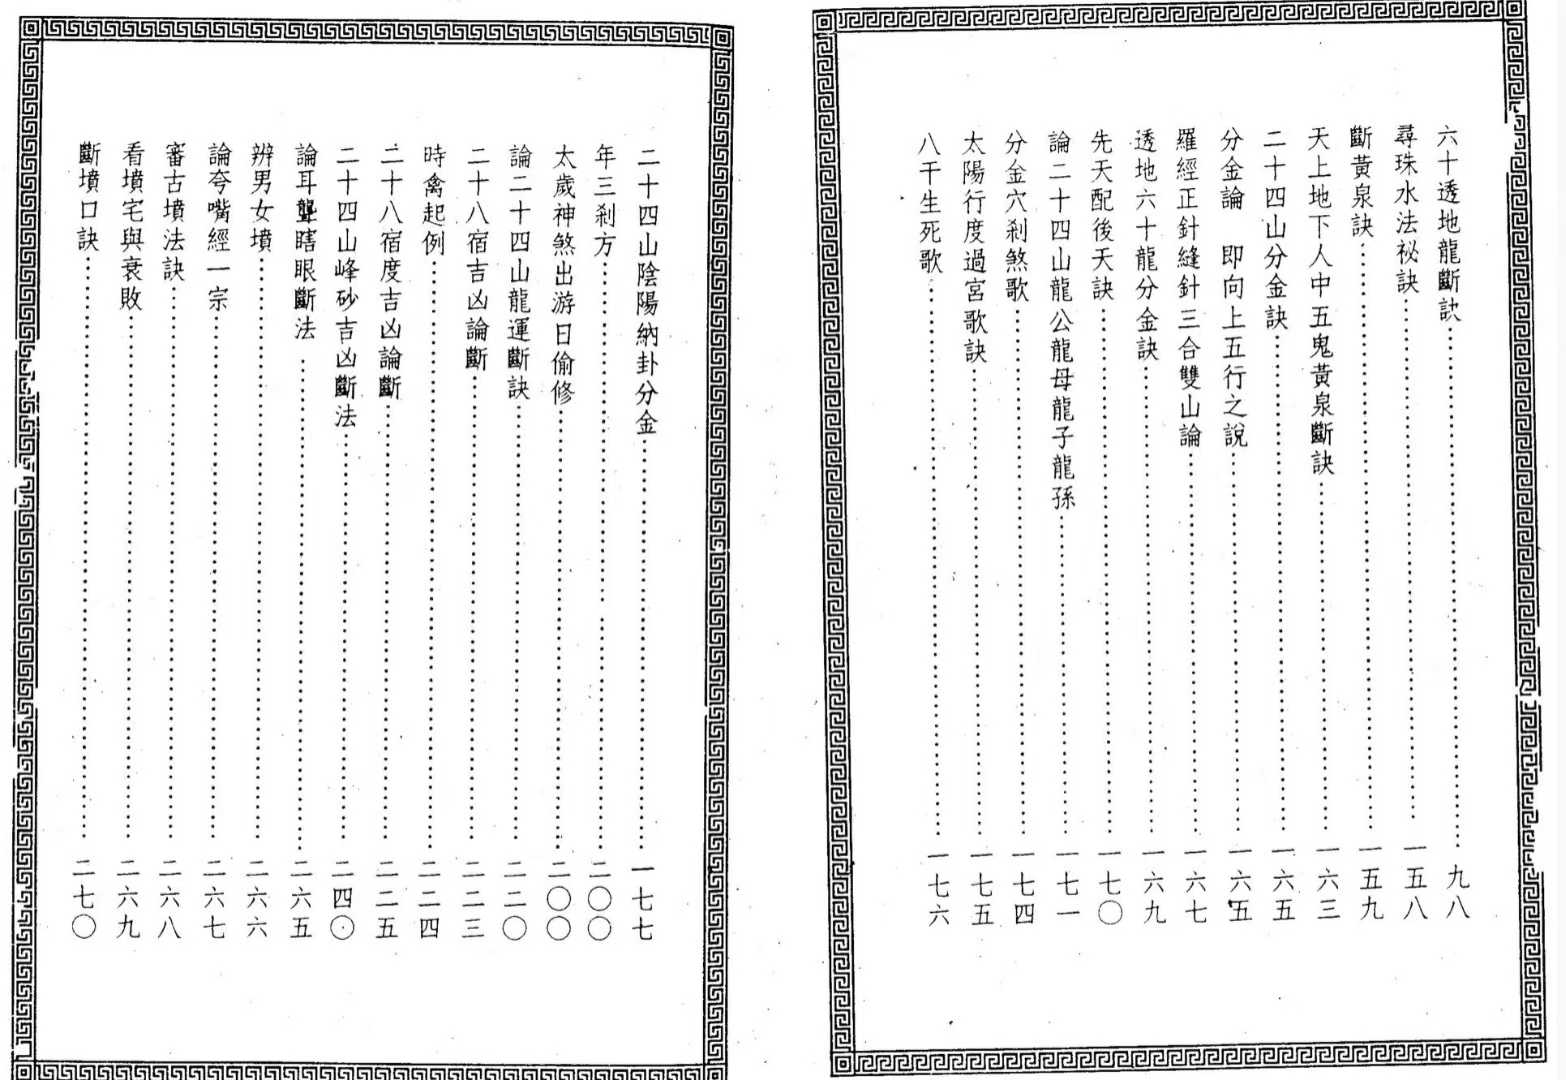 六十透地龍斷訣……九八
尋珠水法祕訣……一五八
斷黃泉訣……一五九
天上地下人中五鬼黃泉斷訣……一六三
二十四山分金訣……一六五
分金論　即向上五行之說……一六五
羅經正針縫針三合雙山論……一六七
透地六十龍分金訣……一六九
先天配後天訣……一七〇
論二十四山龍公龍母龍子龍孫……一七一
分金穴剎煞歌……一七四
太陽行度過宮歌訣……一七五
八干生死歌……一七六
二十四山陰陽納卦分金……一七七
年三剎方……二〇〇
太歲神煞出游日偷修……二〇〇
論二十四山龍運斷訣……二二〇
二十八宿吉凶論斷……二二三
時禽起例……二二四
二十八宿度吉凶論斷……二二五
二十四山峰砂吉凶斷法……二四〇
論耳聾瞎眼斷法……二六五
辨男女墳……二六六
論夸嘴經一宗……二六七
審古墳法訣……二六八
看墳宅與衰敗……二六九
斷墳口訣……二七〇